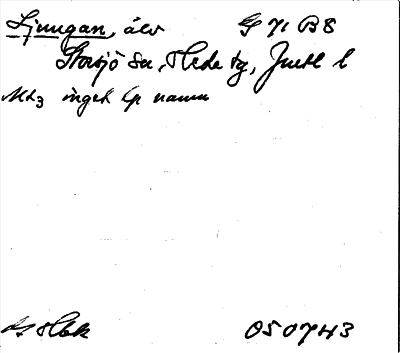 Ljungan, älv Gg 71 B8
Storsjö sn, Hede tg, Jmtl l
Mtz inget lp namn
050743